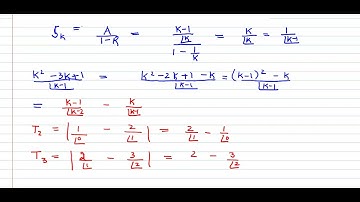 S_k = A/(1-R) = ((K-1)/∟K)/(1 - 1/K) = K/∟K = 1/∟K-1
(K² - 3K + 1)/∟K-1 = (K² - 2K + 1 - K)/∟K-1 = ((K-1)² - K)/∟K-1
= (K-1)/∟K-2 - K/∟K-1
T₂ = |1/∟0 - 2/∟1| = 2/∟1 - 1/∟0
T₃ = |2/∟1 - 3/∟2| = 2 - 3/∟2